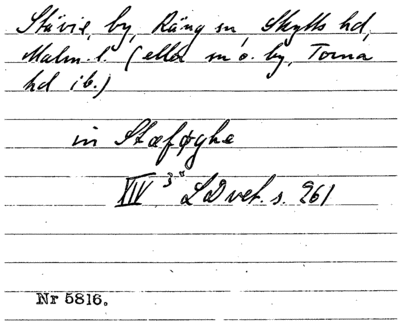 Stävie, by, Räng sn, Skytts hd,
Malm. l. (eller sn o. by, Torna
hd ib.)
in Stæføghe
XIV 3" LDvet. s. 261
Nr 5816.